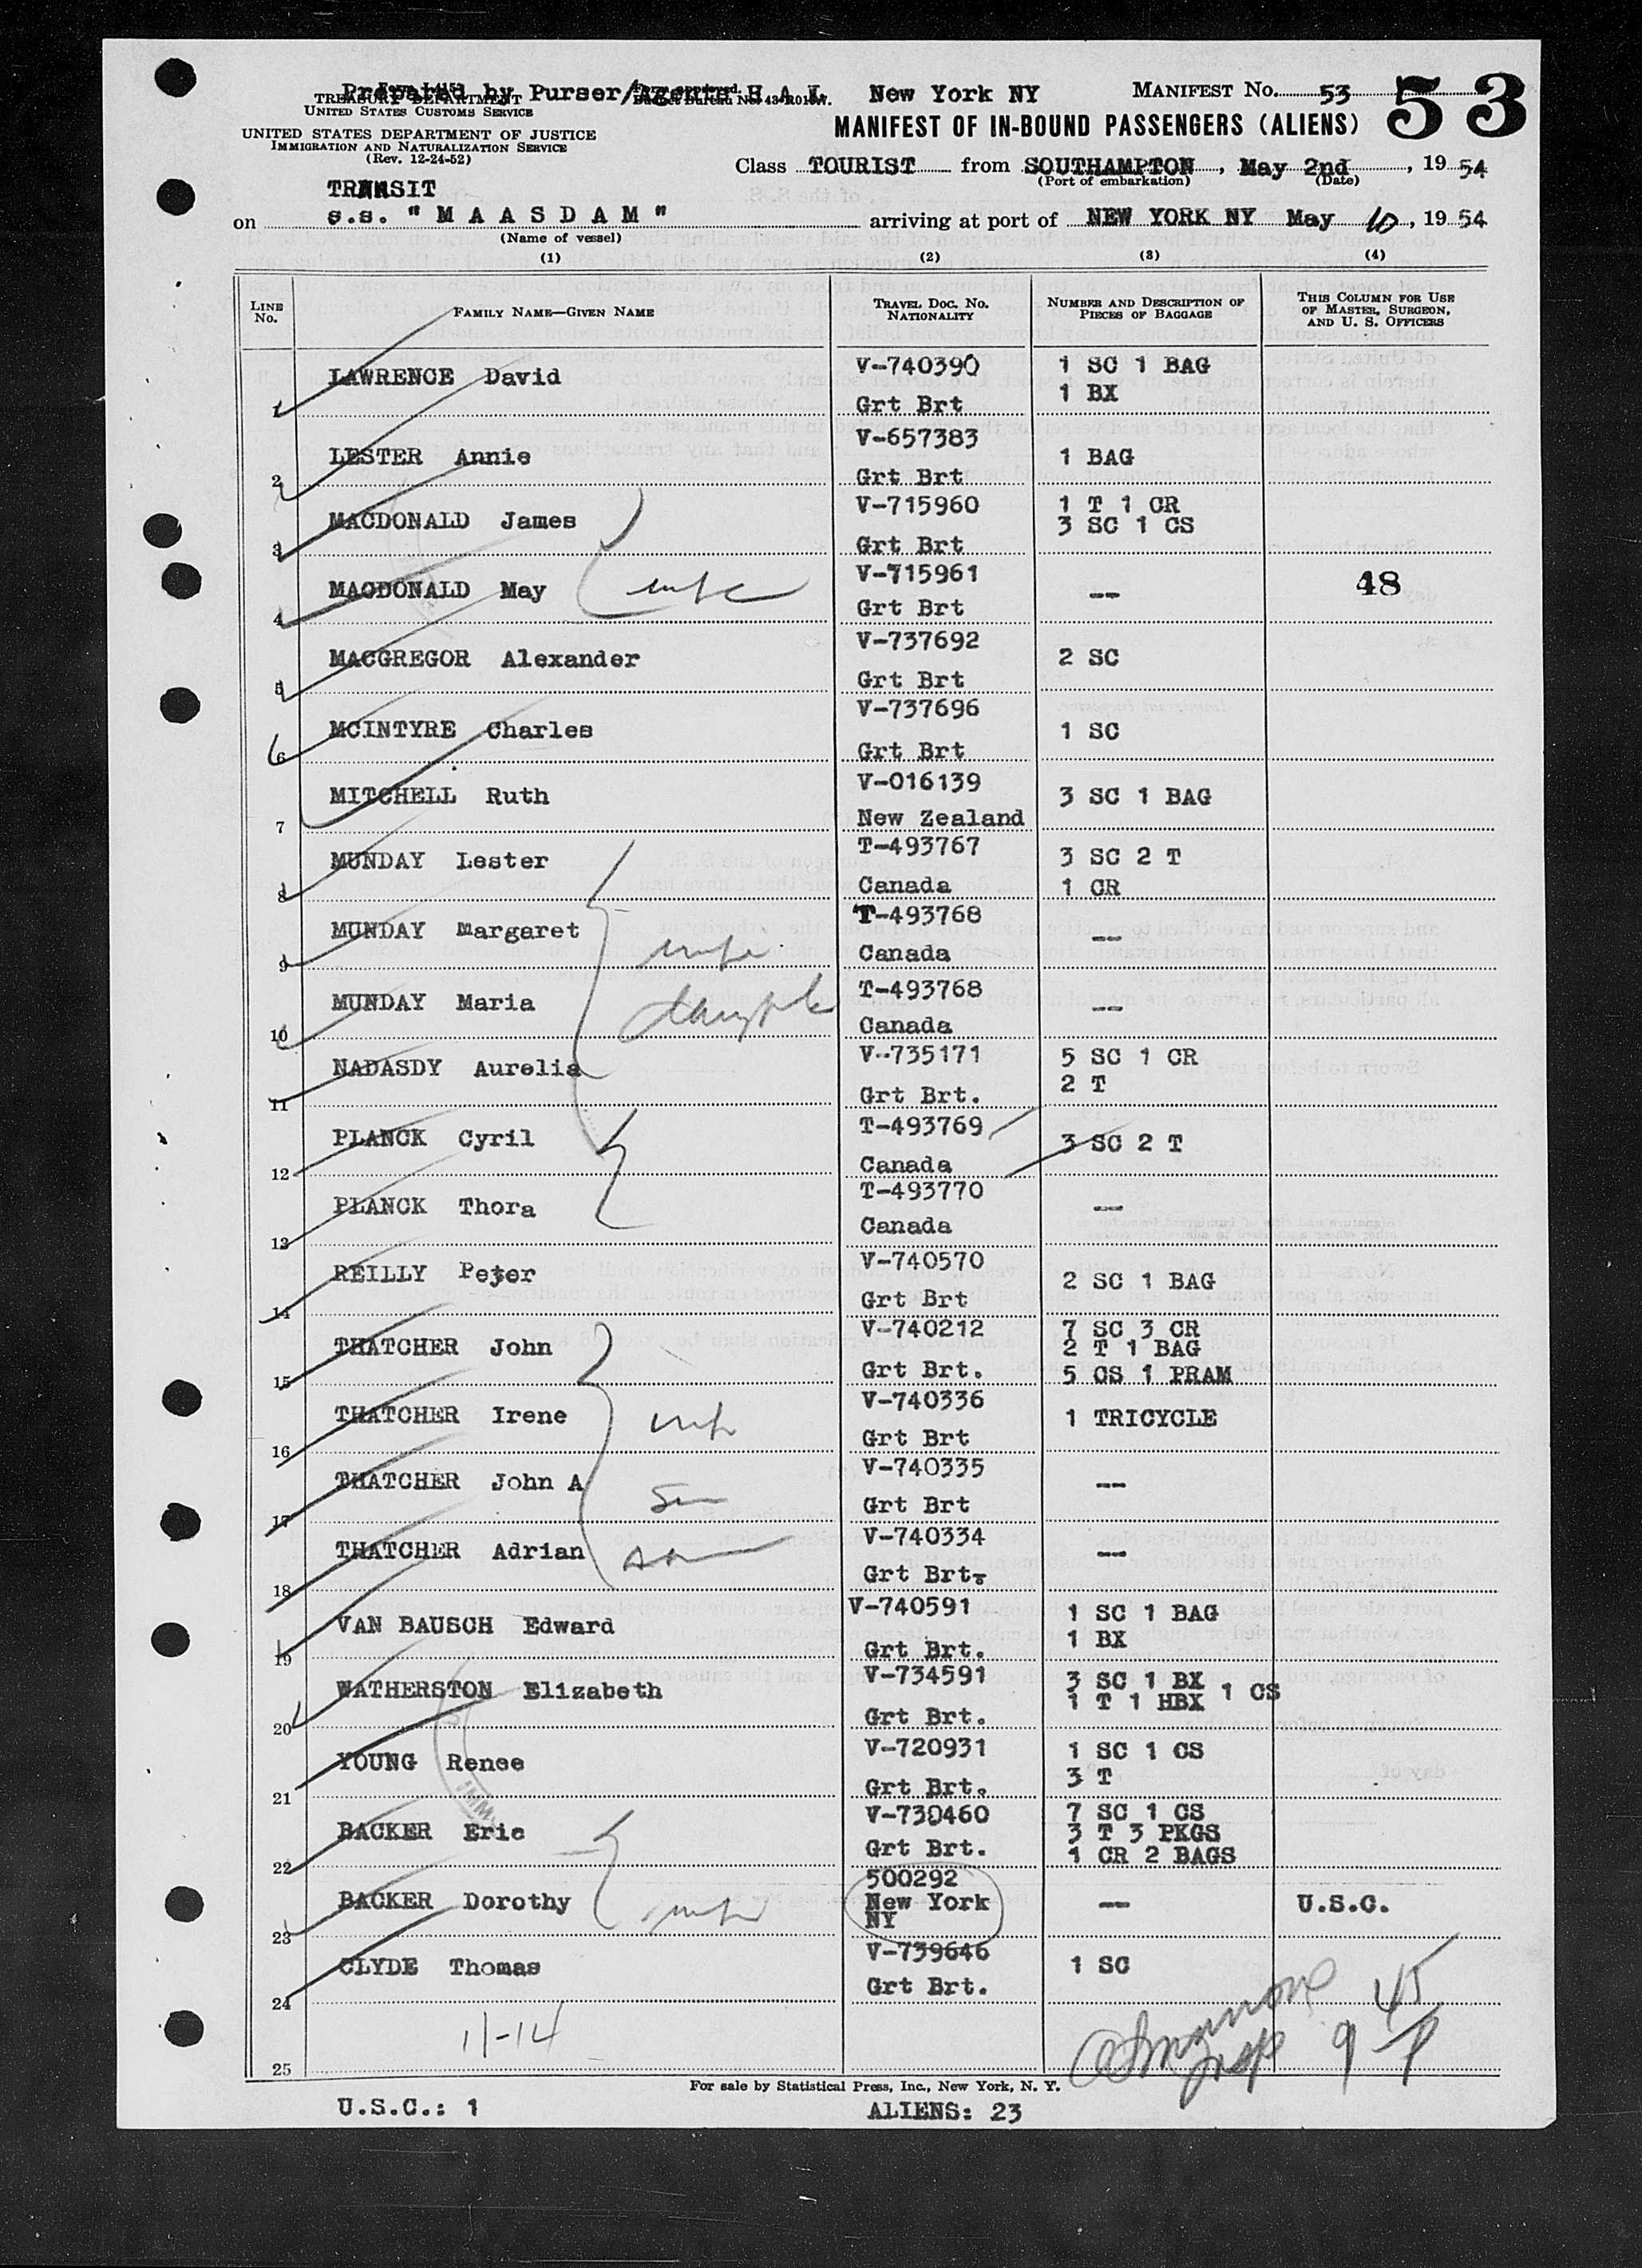 Prepared by Purser/Agents H.A.L. New York NY MANIFEST No. 53 53
TREASURY DEPARTMENT
UNITED STATES CUSTOMS SERVICE
MANIFEST OF IN-BOUND PASSENGERS (ALIENS)
UNITED STATES DEPARTMENT OF JUSTICE
IMMIGRATION AND NATURALIZATION SERVICE
(Rev. 12-24-52)
Class TOURIST from SOUTHAMPTON, May 2nd, 19 54
(Port of embarkation) (Date)
TRANSIT
on s.s. " M A A S D A M " arriving at port of NEW YORK NY May 10, 19 54
(Name of vessel)
(1) (2) (3) (4)
LINE No. FAMILY NAME—GIVEN NAME TRAVEL DOC. NO. NATIONALITY NUMBER AND DESCRIPTION OF PIECES OF BAGGAGE THIS COLUMN FOR USE OF MASTER, SURGEON, AND U. S. OFFICERS
1 LAWRENCE David V-740390 Grt Brt 1 SC 1 BAG 1 BX
2 LESTER Annie V-657383 Grt Brt 1 BAG
3 MACDONALD James V-715960 Grt Brt 1 T 1 CR 3 SC 1 CS
4 MACDONALD May wife V-715961 Grt Brt -- 48
5 MACGREGOR Alexander V-737692 Grt Brt 2 SC
6 MCINTYRE Charles V-737696 Grt Brt 1 SC
7 MITCHELL Ruth V-016139 New Zealand 3 SC 1 BAG
8 MUNDAY Lester T-493767 Canada 3 SC 2 T 1 CR
9 MUNDAY Margaret wife T-493768 Canada --
10 MUNDAY Maria daughter T-493768 Canada --
11 NADASDY Aurelia V-735171 Grt Brt. 5 SC 1 CR 2 T
12 PLANCK Cyril T-493769 Canada 3 SC 2 T
13 PLANCK Thora T-493770 Canada --
14 REILLY Peter V-740570 Grt Brt 2 SC 1 BAG
15 THATCHER John V-740212 Grt Brt. 7 SC 3 CR 2 T 1 BAG 5 CS 1 PRAM
16 THATCHER Irene wife V-740336 Grt Brt 1 TRICYCLE
17 THATCHER John A son V-740335 Grt Brt --
18 THATCHER Adrian son V-740334 Grt Brt. --
19 VAN BAUSCH Edward V-740591 Grt Brt. 1 SC 1 BAG 1 BX
20 WATHERSTON Elizabeth V-734591 Grt Brt. 3 SC 1 BX 1 T 1 HBX 1 CS
21 YOUNG Renee V-720931 Grt Brt. 1 SC 1 CS 3 T
22 BACKER Eric V-730460 Grt Brt. 7 SC 1 CS 3 T 3 PKGS 1 CR 2 BAGS
23 BACKER Dorothy wife 500292 New York NY -- U.S.C.
24 CLYDE Thomas V-739646 Grt Brt. 1 SC
25 11-14
For sale by Statistical Press, Inc., New York, N. Y.
U.S.C.: 1 ALIENS: 23